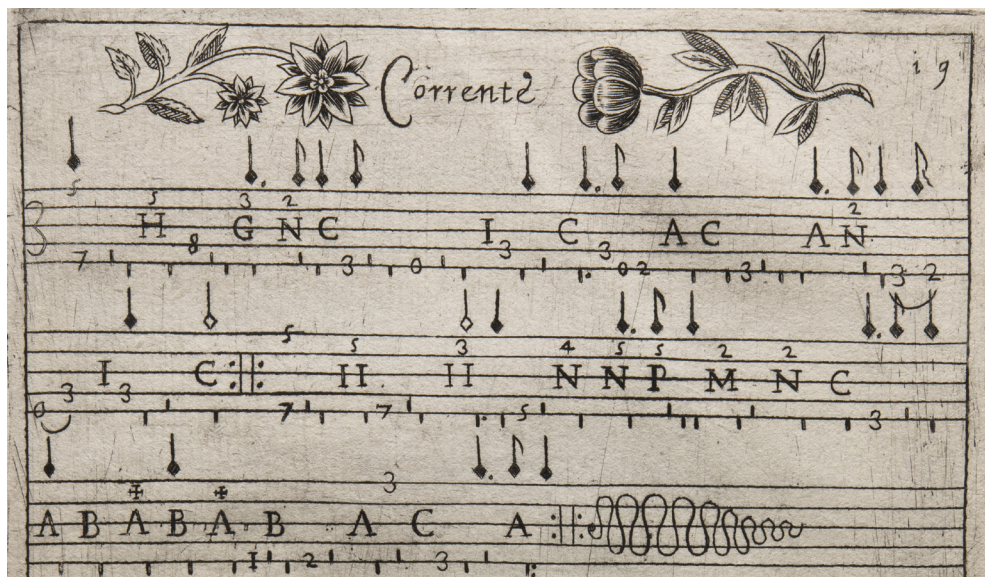 Corrente 19
5 5 3 2 2
3 H 8 G N C I 3 C 3 A C A N
7 3 0 0 2 3 3 2
5 5 3 4 5 5 2 2
3 I 3 C H H N N P M N C
0 7 7 5 3
3
A B A B A B A C A
1 2 3